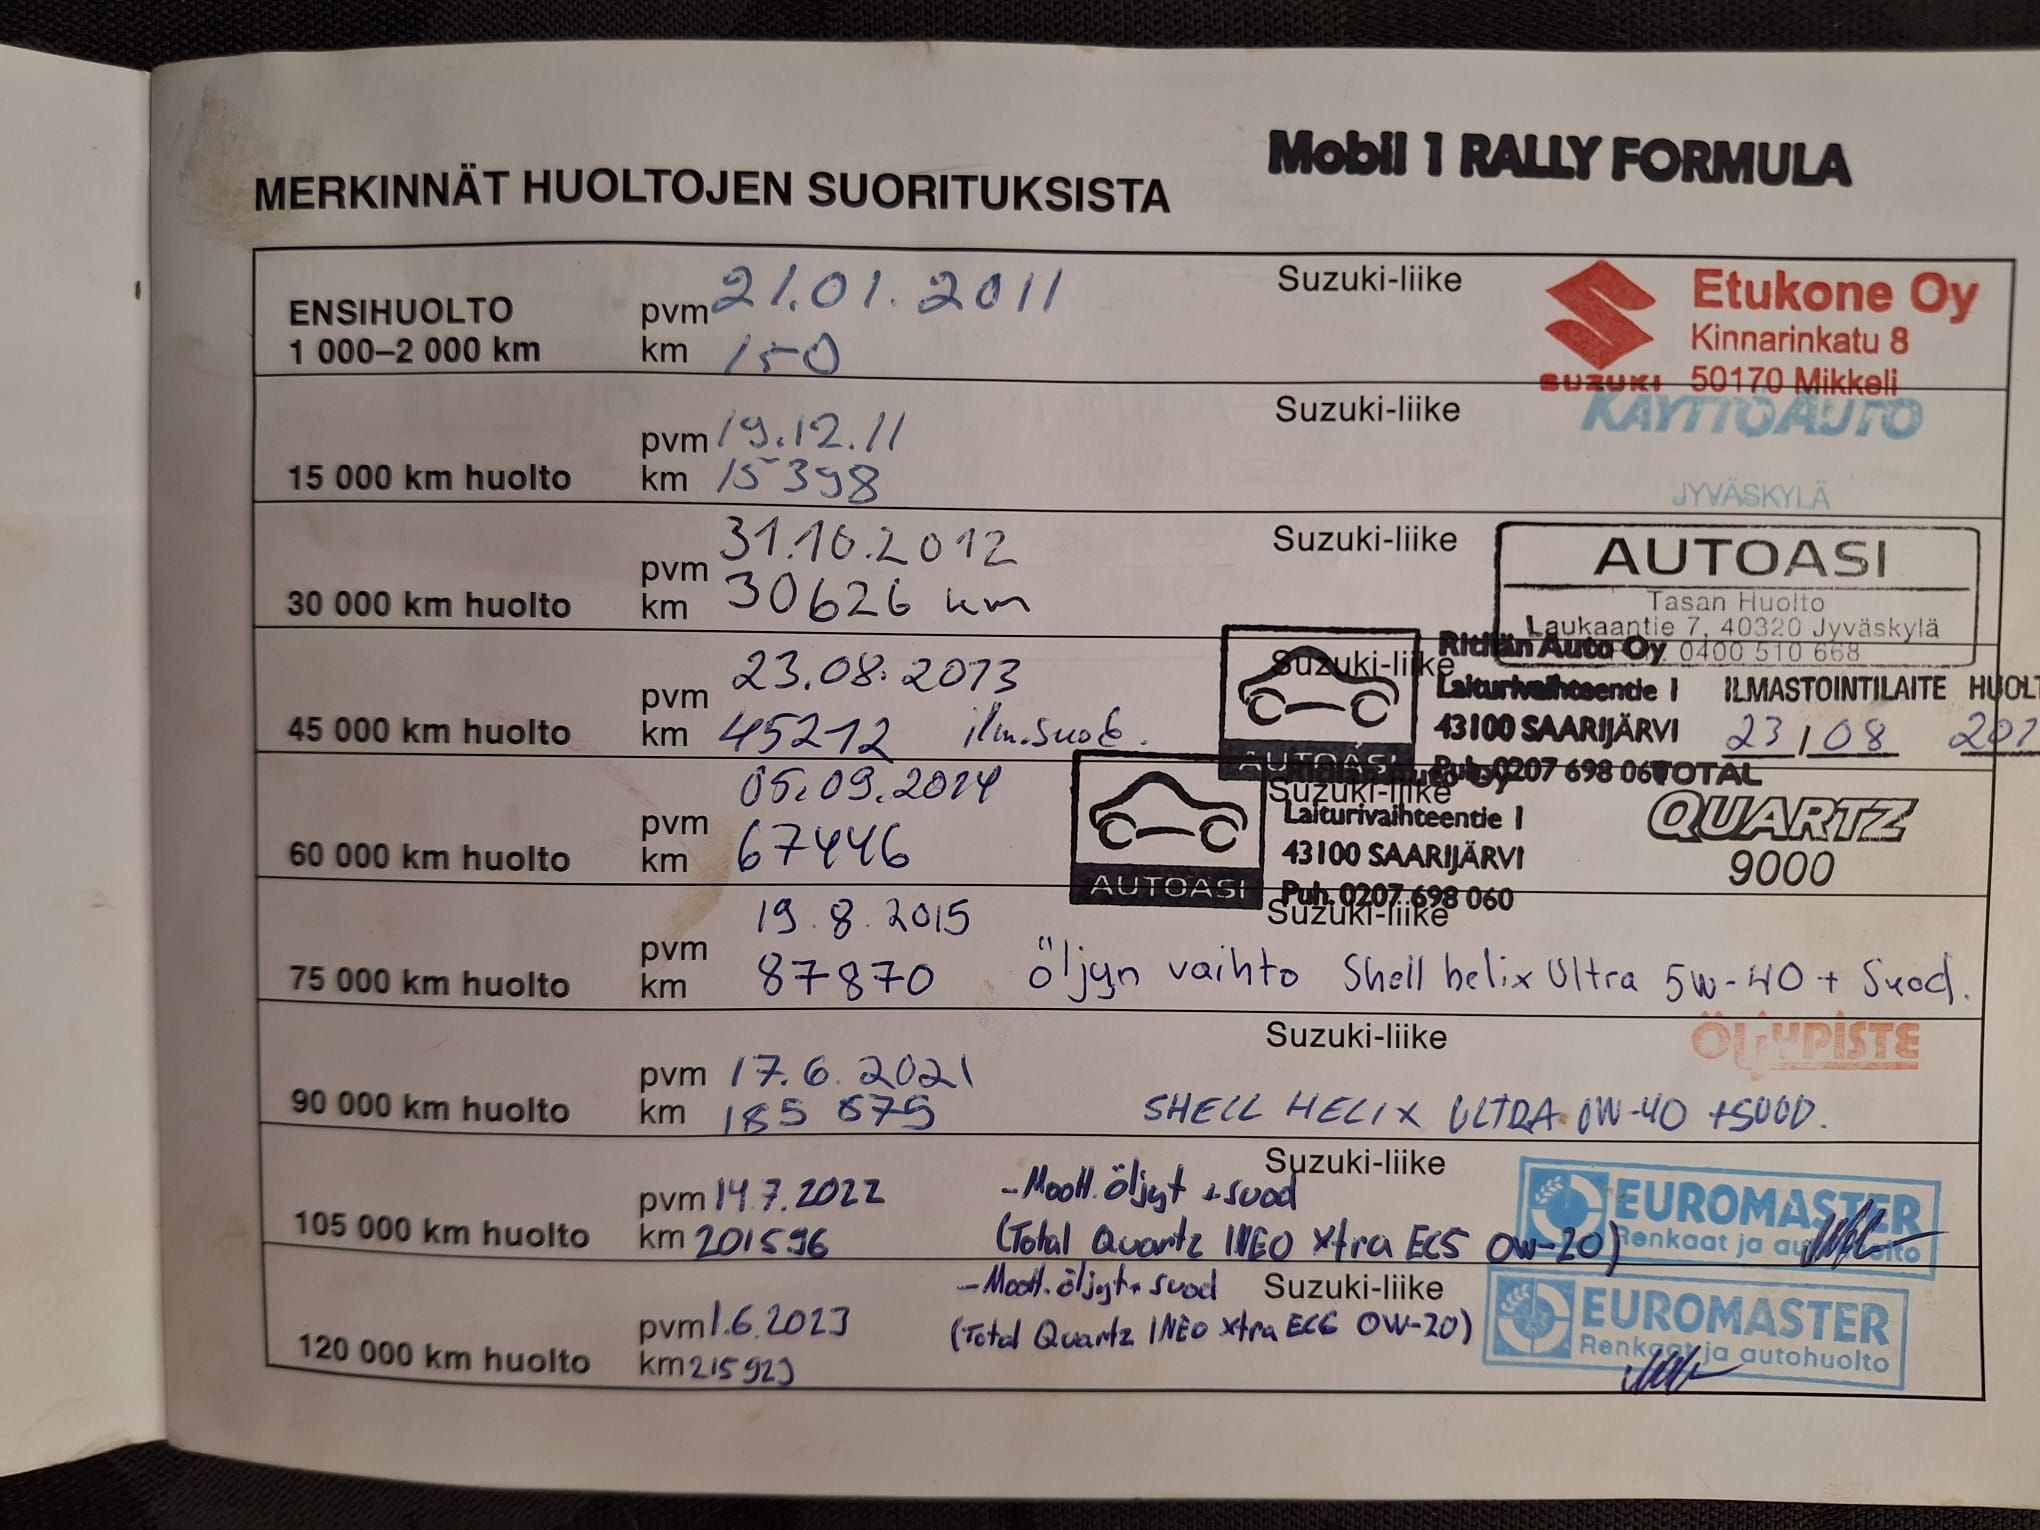 Mobil 1 RALLY FORMULA
MERKINNÄT HUOLTOJEN SUORITUKSISTA
ENSIHUOLTO
1 000–2 000 km
pvm 21.01.2011
km 150
Suzuki-liike
SUZUKI
Etukone Oy
Kinnarinkatu 8
50170 Mikkeli
15 000 km huolto
pvm 19.12.11
km 15398
Suzuki-liike
KÄYTTÖAUTO
JYVÄSKYLÄ
30 000 km huolto
pvm 31.10.2012
km 30626 km
Suzuki-liike
AUTOASI
Tasan Huolto
Laukaantie 7, 40320 Jyväskylä
0400 510 668
45 000 km huolto
pvm 23.08.2013
km 45212 ilm.suod.
Suzuki-liike
AUTOASI
Auto Oy
Laiturivaihteentie 1
43100 SAARIJÄRVI
Puh. 0207 698 060
ILMASTOINTILAITE HUOLT
23/08 201
60 000 km huolto
pvm 05.09.2014
km 67446
Suzuki-liike
AUTOASI
Laiturivaihteentie 1
43100 SAARIJÄRVI
Puh. 0207 698 060
TOTAL
QUARTZ
9000
75 000 km huolto
pvm 19.8.2015
km 87870
Suzuki-liike
Öljyn vaihto Shell helix Ultra 5W-40 + Suod.
90 000 km huolto
pvm 17.6.2021
km 185 879
Suzuki-liike
ÖLJYPISTE
SHELL HELIX ULTRA 0W-40 +SUOD.
105 000 km huolto
pvm 14.7.2022
km 201596
Suzuki-liike
-Moott.öljyt + suod
(Total Quartz INEO Xtra EC5 0W-20)
EUROMASTER
Renkaat ja autohuolto
120 000 km huolto
pvm 1.6.2023
km 215923
Suzuki-liike
-Moott.öljyt + suod
(Total Quartz INEO Xtra EC6 0W-20)
EUROMASTER
Renkaat ja autohuolto